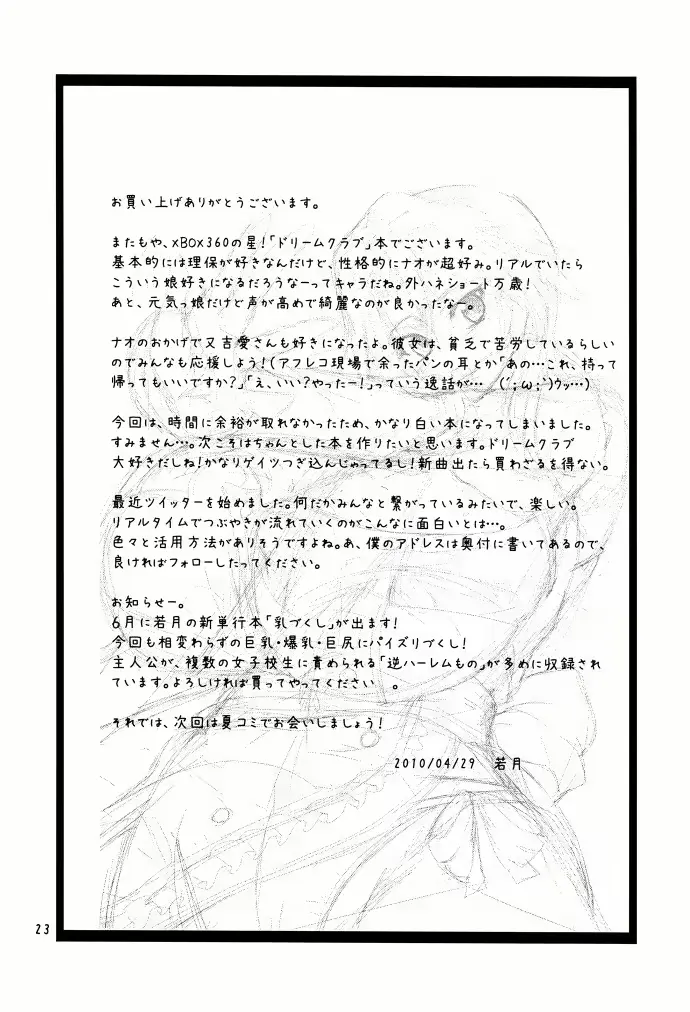 お買い上げありがとうございます。
またもや、xBOx360の星!「ドリームクラブ」本でございます。
基本的には理保が好きなんだけど、性格的にナオが超好み。リアルでいたら
こういう娘好きになるだろうなーってキャラだね。外ハネショート万歳!
あと、元気っ娘だけど声が高めで綺麗なのが良かったなー。
ナオのおかげで又吉愛さんも好きになったよ。彼女は、貧乏で苦労しているらしい
のでみんなも応援しよう!(アフレコ現場で余ったパンの耳とか「あの…これ、持って
帰ってもいいですか?」「え、いい?やったー!」っていう逸話が… (´;ω;`)ウッ…)
今回は、時間に余裕が取れなかったため、かなり白い本になってしまいました。
すみません…。次こそはちゃんとした本を作りたいと思います。ドリームクラブ
大好きだしね!かなりゲイツつぎ込んじゃってるし!新曲出たら買わざるを得ない。
最近ツイッターを始めました。何だかみんなと繋がっているみたいで、楽しい。
リアルタイムでつぶやきが流れていくのがこんなに面白いとは…。
色々と活用方法がありそうですよね。あ、僕のアドレスは奥付に書いてあるので、
良ければフォローしたってください。
お知らせー。
6月に若月の新単行本「乳づくし」が出ます!
今回も相変わらずの巨乳・爆乳・巨尻にパイズリづくし!
主人公が、複数の女子校生に責められる「逆ハーレムもの」が多めに収録され
ています。よろしければ買ってやってください 。
それでは、次回は夏コミでお会いしましょう!
2010/04/29 若月
23